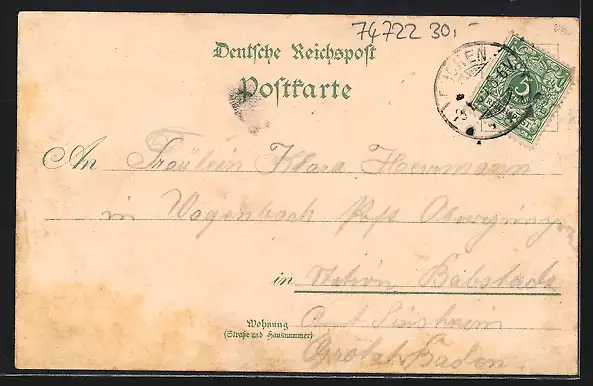 74722 30,-
Deutsche Reichspost
Postkarte
An Fräulein Klara Herrmann
in Wagenbach Post
in Station Babstadt
Wohnung
(Straße und Hausnummer)
Amt Sinsheim
Baden